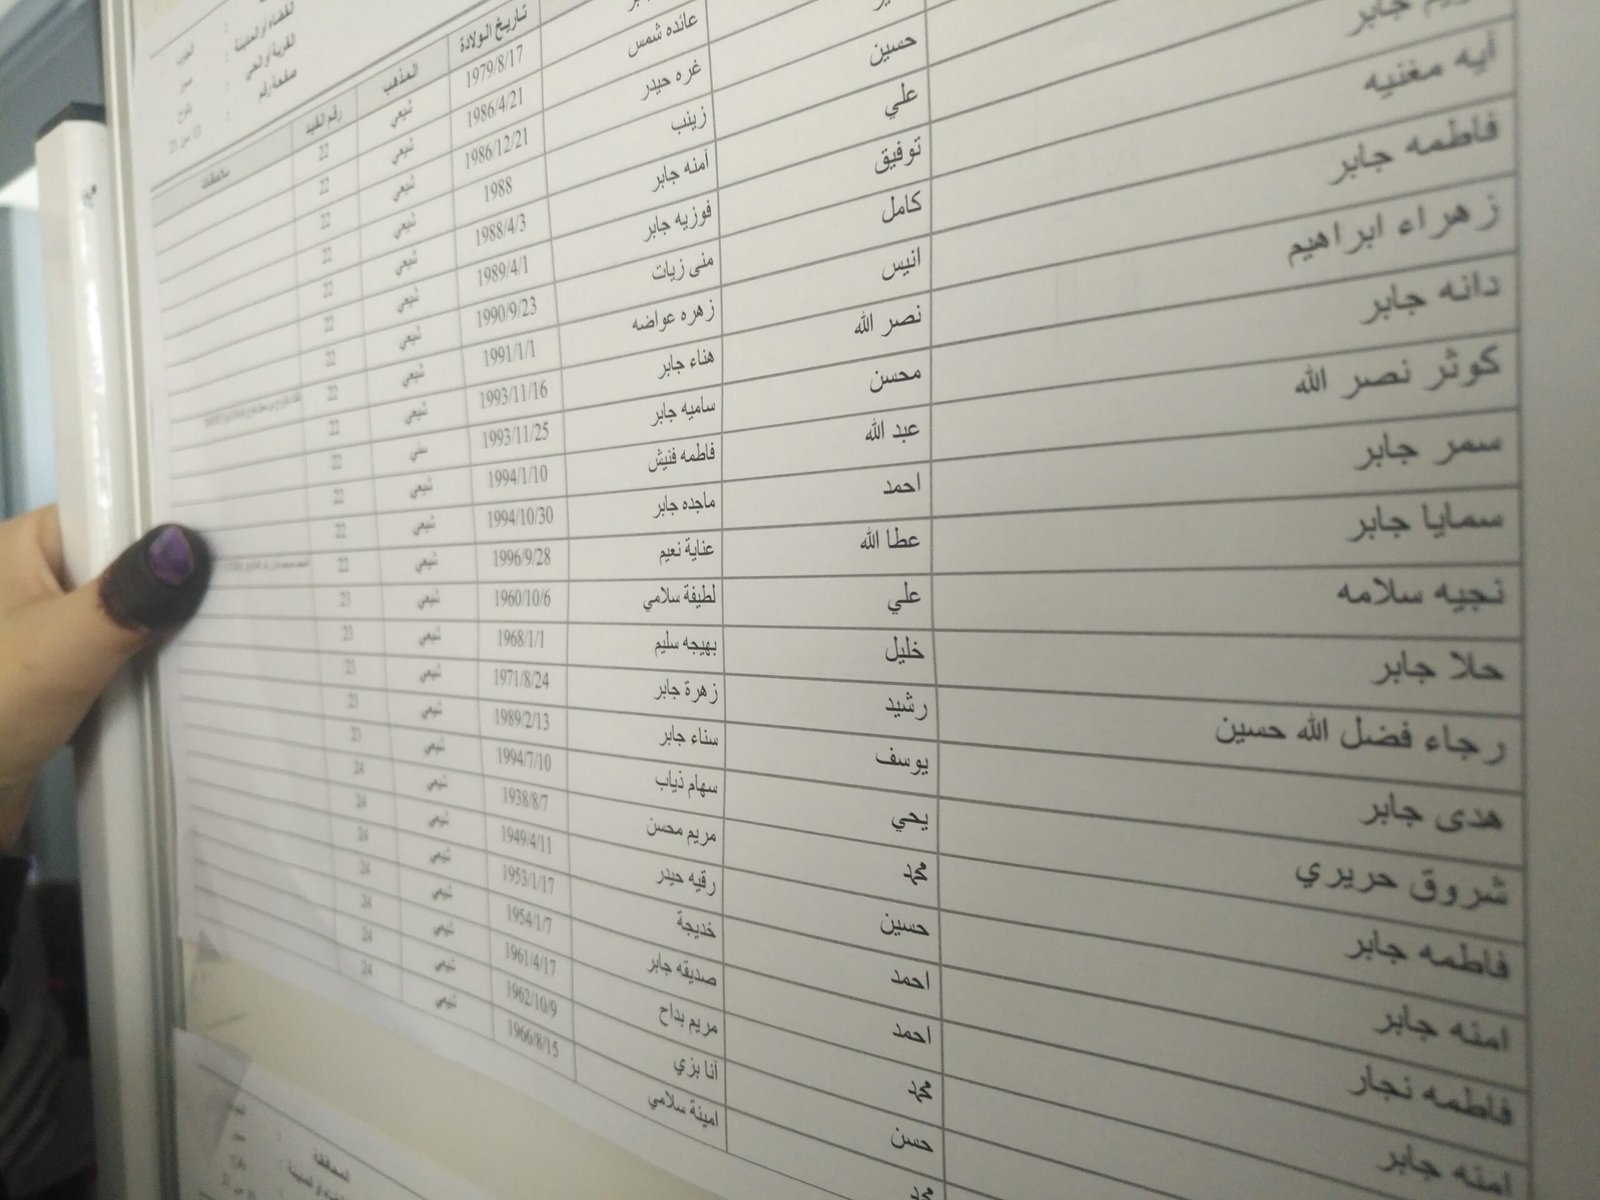 القضاء او المدينة :
القرية او الحي :
صفحة رقم :
تاريخ الولادة المذهب رقم القيد ملاحظات
جابر 1979/8/17 شيعي 22
عائده شمس 1986/4/21 شيعي 22
غره حيدر 1986/12/21 شيعي 22
حسين زينب 1988 شيعي 22
علي آمنه جابر 1988/4/3 شيعي 22
جابر توفيق فوزيه جابر 1989/4/1 شيعي 22
آيه مغنيه كامل منى زيات 1990/9/23 شيعي 22
فاطمه جابر انيس زهره عواضه 1991/1/1 شيعي 22
زهراء ابراهيم نصر الله هناء جابر 1993/11/16 شيعي 22
دانه جابر محسن ساميه جابر 1993/11/25 سني 22
كوثر نصر الله عبد الله فاطمه فنيش 1994/1/10 شيعي 22
سمر جابر احمد ماجده جابر 1994/10/30 شيعي 22
سمايا جابر عطا الله عناية نعيم 1996/9/28 شيعي 22
نجيه سلامه علي لطيفة سلامي 1960/10/6 شيعي 23
حلا جابر خليل بهيجه سليم 1968/1/1 شيعي 23
رجاء فضل الله حسين رشيد زهرة جابر 1971/8/24 شيعي 23
هدى جابر يوسف سناء جابر 1989/2/13 شيعي 23
شروق حريري يحي سهام ذياب 1994/7/10 شيعي 23
فاطمه جابر محمد مريم محسن 1938/8/7 شيعي 24
امنه جابر حسين رقيه حيدر 1949/4/11 شيعي 24
فاطمه نجار احمد خديجة 1953/1/17 شيعي 24
امنه جابر احمد صديقه جابر 1954/1/7 شيعي 24
محمد مريم بداح 1961/4/17 شيعي 24
حسن آنا بزي 1962/10/9 شيعي 24
محمد امينة سلامي 1966/8/15 شيعي 24
المحافظة :